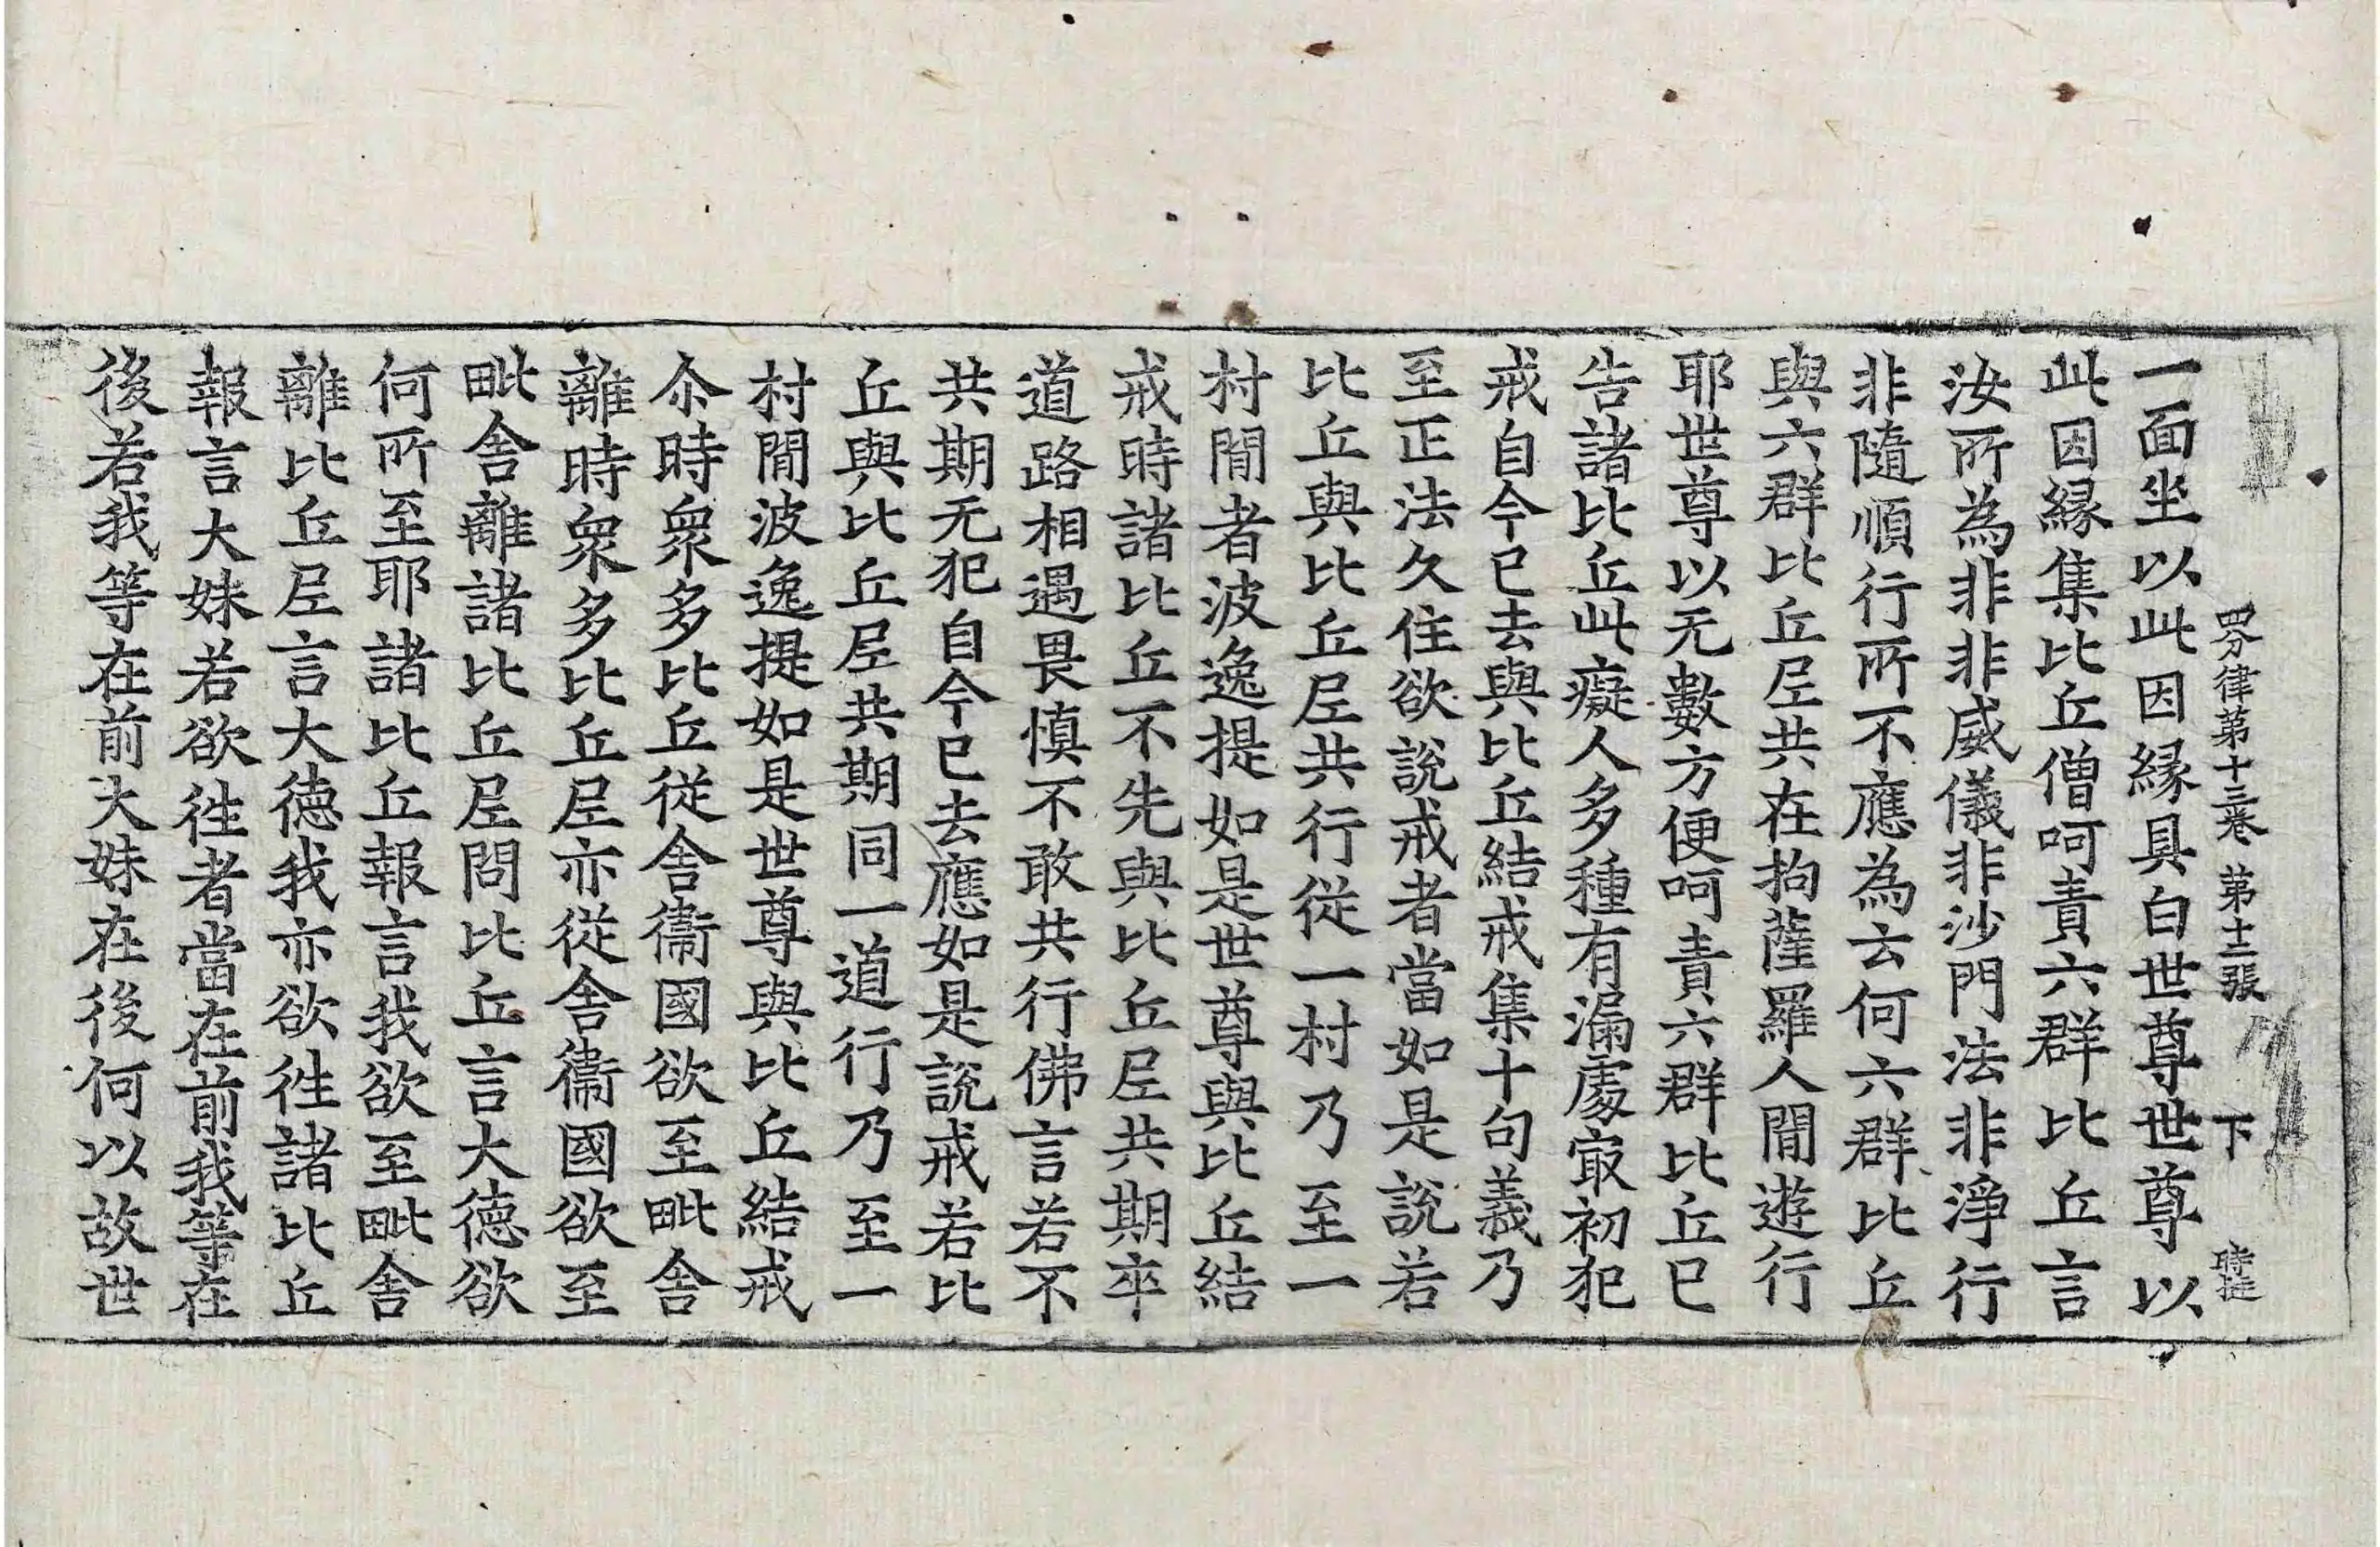 四分律第十三卷 第十二張 下
一面坐以此因緣具白世尊世尊以
此因緣集比丘僧呵責六群比丘言
汝所為非非威儀非沙門法非淨行
非隨順行所不應為云何六群比丘
與六群比丘尼共在拘薩羅人間遊行
耶世尊以无數方便呵責六群比丘已
告諸比丘此癡人多種有漏處㝡初犯
戒自今已去與比丘結戒集十句義乃
至正法久住欲說戒者當如是說若
比丘與比丘尼共行從一村乃至一
村間者波逸提如是世尊與比丘結
戒時諸比丘不先與比丘尼共期卒
道路相遇畏慎不敢共行佛言若不
共期无犯自今已去應如是說戒若比
丘與比丘尼共期同一道行乃至一
村間波逸提如是世尊與比丘結戒
尒時衆多比丘從舍衛國欲至毗舍
離時衆多比丘尼亦從舍衛國欲至
毗舍離諸比丘尼問比丘言大德欲
何所至耶諸比丘報言我欲至毗舍
離比丘尼言大德我亦欲徃諸比丘
報言大妹若欲徃者當在前我等在
後若我等在前大妹在後何以故世